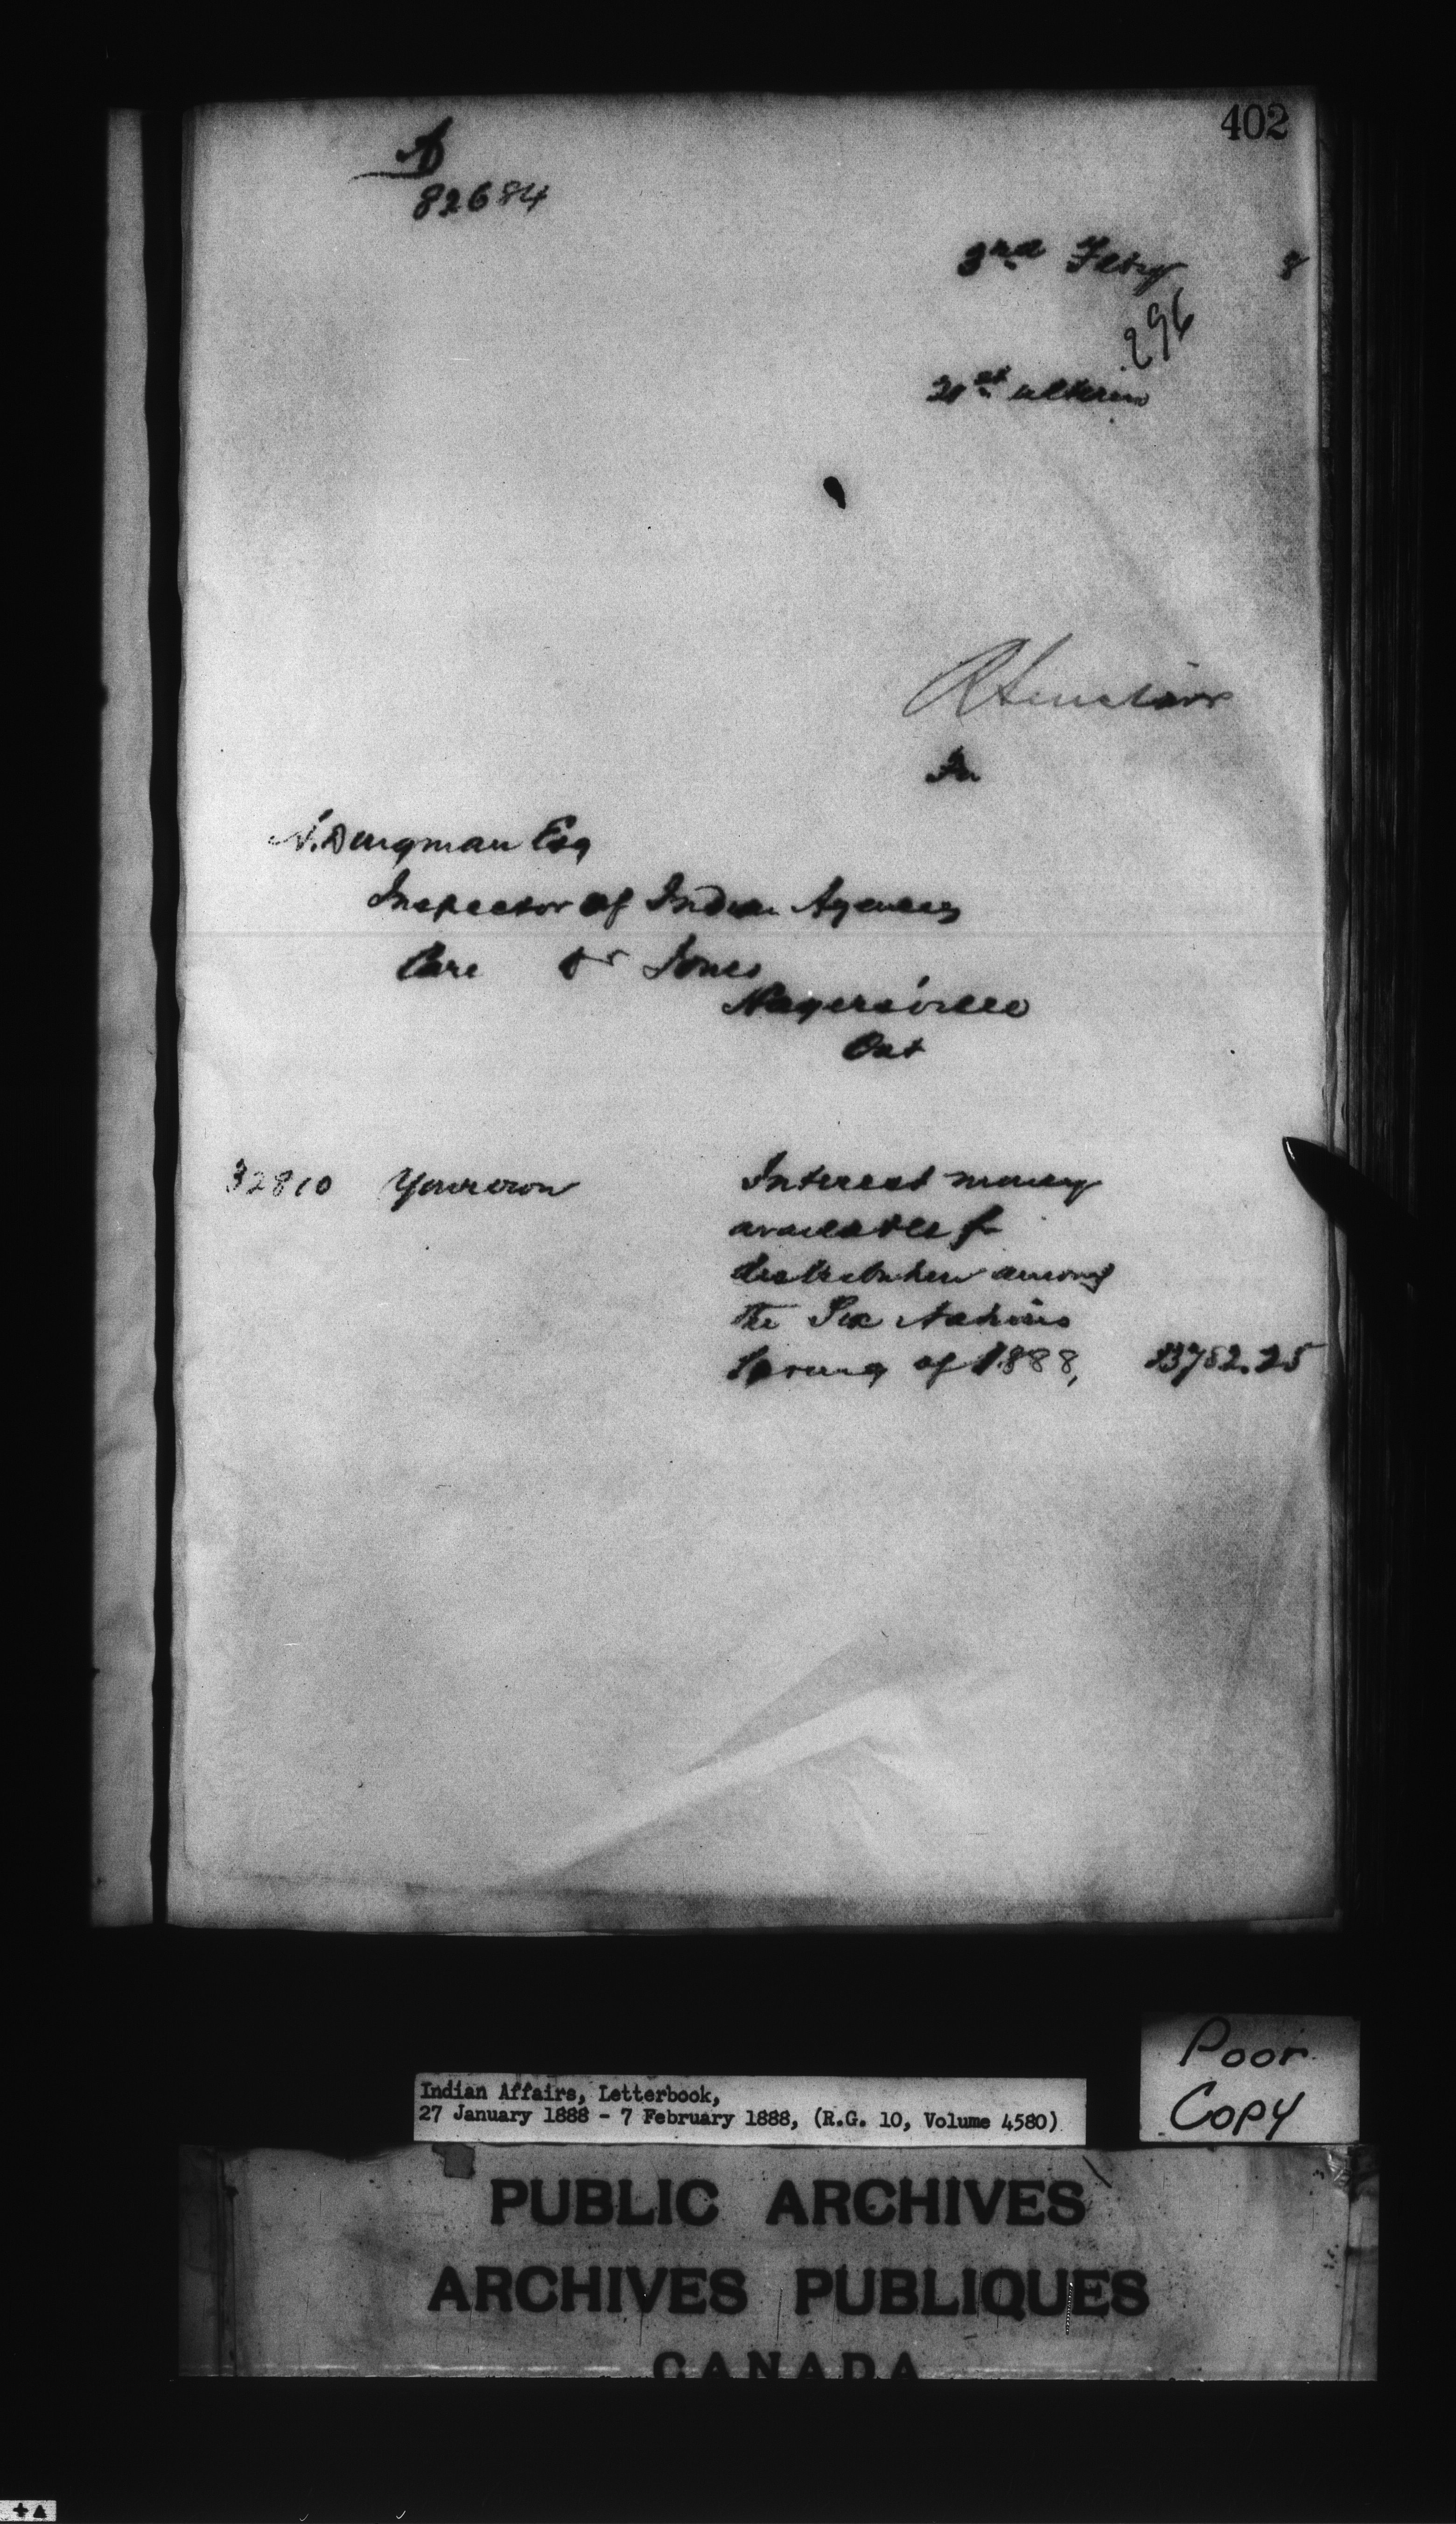 402
A
82684
3rd Feby 8
296
31st ultimo
R Sinclair
In
N. Dingman Esq
Inspector of Indian Agencies
Care Dr Jones
Hagersville
Ont
32810 Your own Interest money
available for
distribution among
the Six Nations
Spring of 1888, 13782.25
Poor
Copy
Indian Affairs, Letterbook,
27 January 1888 - 7 February 1888, (R.G. 10, Volume 4580)
PUBLIC ARCHIVES
ARCHIVES PUBLIQUES
CANADA